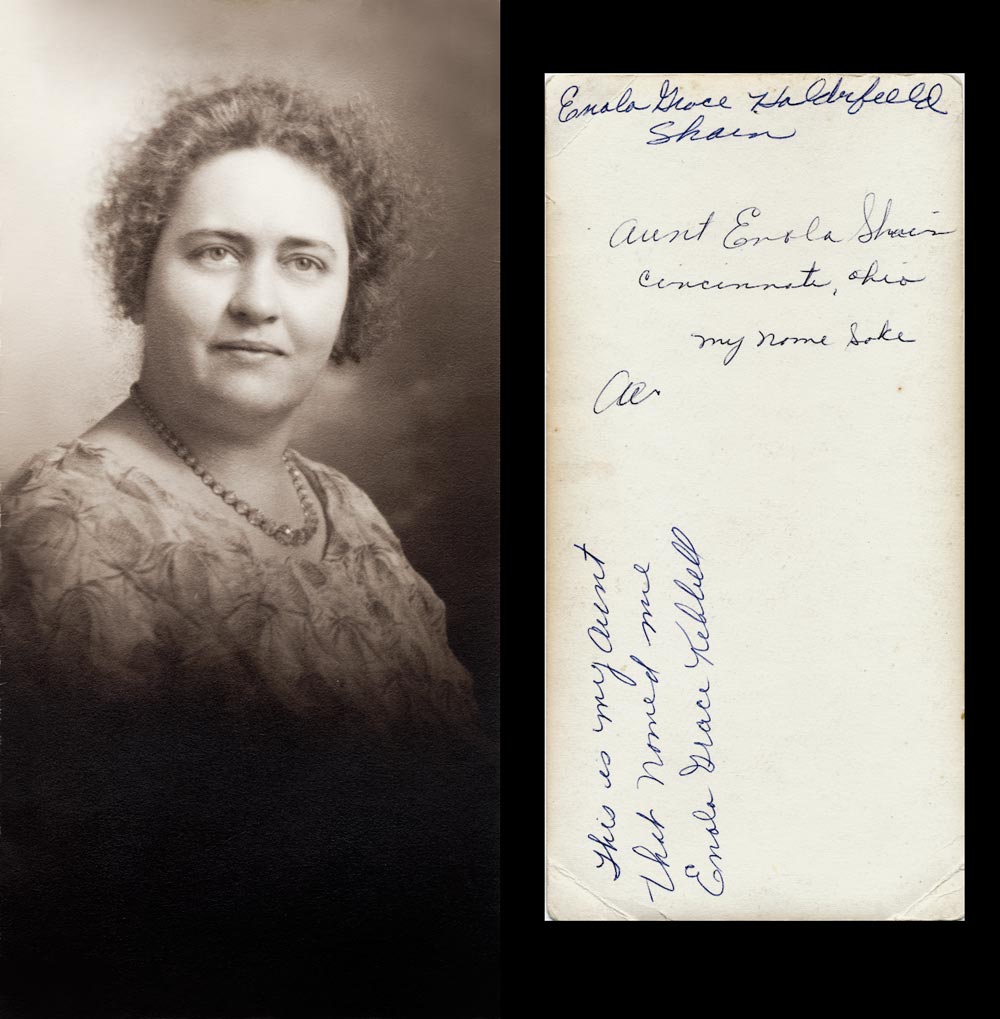 Enola Grace Holderfield
Shain
Aunt Enola Shain
Cincinnate, Ohio
my Nome Sake
This is my Aunt
that Nomed me
Enola Grace Kebbell